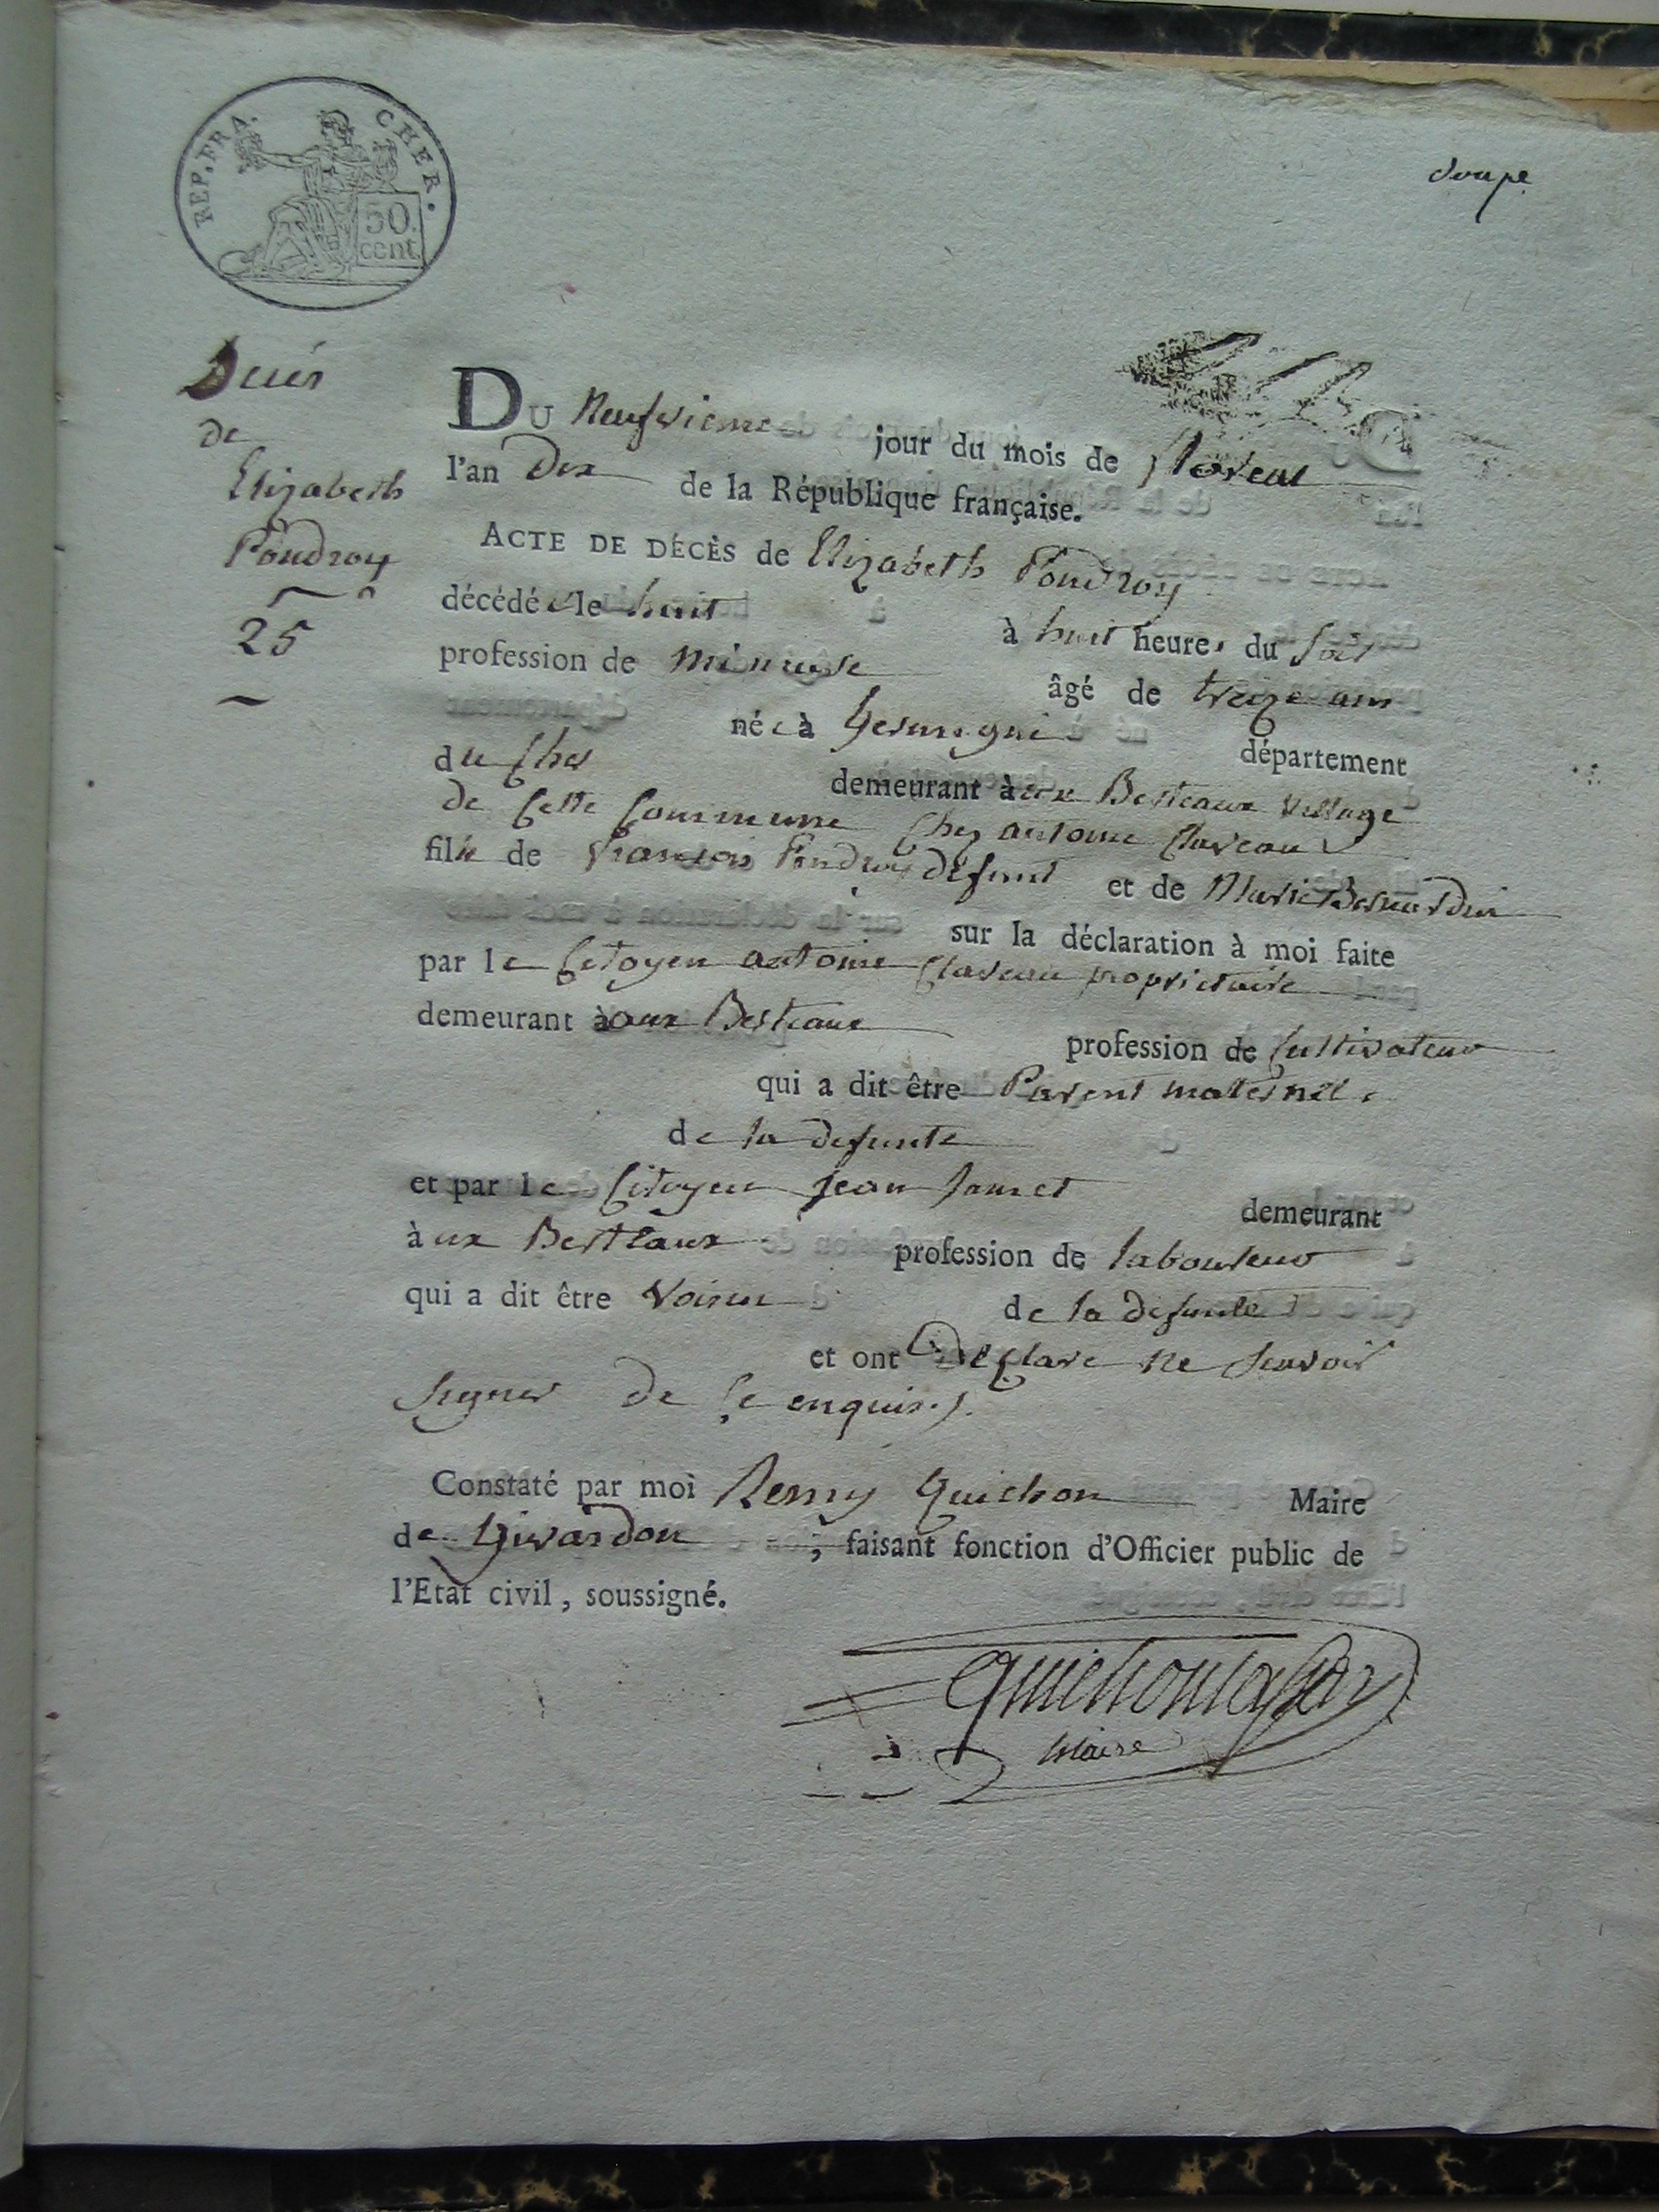 REP. FRA. CHER.
50
cent.
Décès
de
Elizabeth
Poudroy
25
DU Neufvieme jour du mois de floreal
l'an Dix de la République française.
ACTE DE DÉCÈS de Elizabeth Poudroy
décédée le huit à huit heures du soir
profession de mineure âgé de treize ans
née à Germigni département
du Cher demeurant à aux Besteaux village
de Cette Commune Chez antoine Claveau
fille de François Poudroy défunt et de Marie Bernardin
sur la déclaration à moi faite
par le Citoyen antoine Claveau proprietaire
demeurant à aux Besteaux profession de Cultivateur
qui a dit être Parent maternel
de la defunte
et par le Citoyen Jean Jamet demeurant
à ux Besteaux profession de laboureur
qui a dit être Voisin de la defunte
et ont Declare ne scavoir
signer de Ce enquis
Constaté par moi Remy Quichon Maire
de Givardon, faisant fonction d'Officier public de
l'Etat civil, soussigné.
Maire